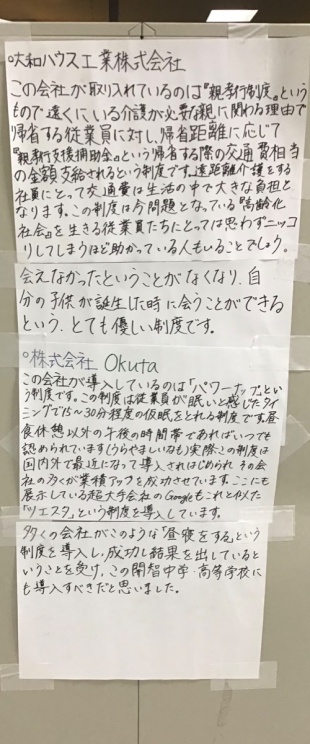 ○大和ハウス工業株式会社
この会社が取り入れているのは『親孝行制度』という
もので遠くにいる介護が必要な親に関わる理由で
帰省する従業員に対し、帰省距離に応じて
『親孝行支援補助金』という帰省する際の交通費相当
の金額支給されるという制度です。遠距離介護をする
社員にとって交通費は生活の中で大きな負担と
なります。この制度は今問題となっている『高齢化
社会』を生きる従業員たちにとっては思わずニッコ
リしてしまうほど助かっている人もいることでしょう。
会えなかったということがなくなり、自
分の子供が誕生した時に会うことができる
という、とても優しい制度です。
○株式会社 Okuta
この会社が導入しているのは「パワーナップ」とい
う制度です。この制度は従業員が眠いと感じたタイ
ミングで15〜30分程度の仮眠をとれる制度です。昼
食休憩以外の午後の時間帯であればいつでも
認められています(うらやましいなも)実際この制度は
国内外で最近になって導入されはじめられ その会
社の多くが業績アップを成功させています。ここにも
展示している超大手会社のGoogleもこれと似た
「シエスタ」という制度を導入しています。
多くの会社がこのような「昼寝をする」という
制度を導入し、成功し結果を出していると
いうことを受け、この開智中学・高等学校に
も導入すべきだと思いました。